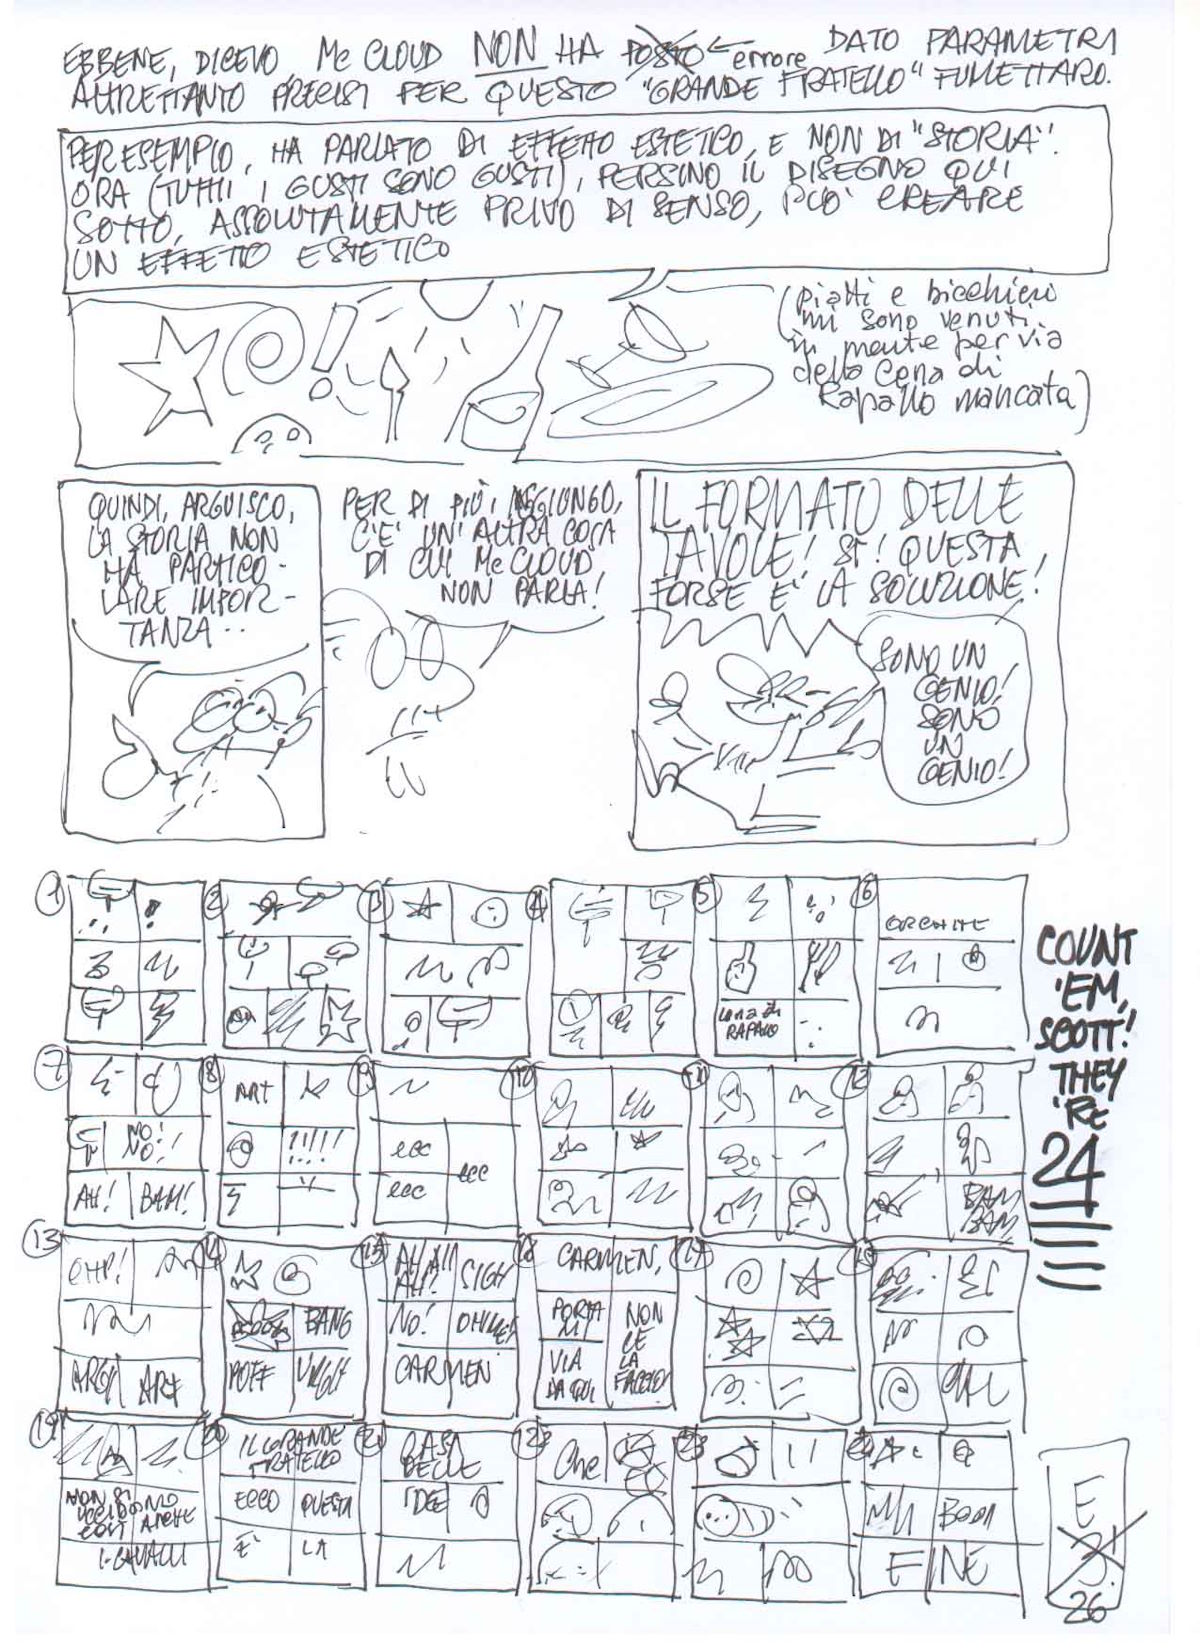 EBBENE, DICEVO Mc CLOUD NON HA POSTO ← errore DATO PARAMETRI
ALTRETTANTO PRECISI PER QUESTO "GRANDE FRATELLO" FUMETTARO.
PER ESEMPIO, HA PARLATO DI EFFETTO ESTETICO, E NON DI "STORIA".
ORA (TUTTI I GUSTI SONO GUSTI), PERSINO IL DISEGNO QUI
SOTTO, ASSOLUTAMENTE PRIVO DI SENSO, PUO' CREARE
UN EFFETTO ESTETICO
(piatti e bicchieri
mi sono venuti
in mente per via
della Cena di
Rapallo mancata)
QUINDI, ARGUISCO,
LA STORIA NON
HA PARTICO-
LARE IMPOR-
TANZA..
PER DI PIÙ, AGGIUNGO,
C'E' UN'ALTRA COSA
DI CUI Mc CLOUD
NON PARLA!
IL FORMATO DELLE
TAVOLE! SI! QUESTA
FORSE E' LA SOLUZIONE!
SONO UN
GENIO!
SONO
UN
GENIO!
1
2
3
4
5
Cena di
RAPALLO
6
ORCHITE
COUNT
'EM,
SCOTT!
THEY
'RE
24
7
NO!
NO!!
AH! BAM!
8
ART
!!!!!
9
ecc
ecc
ecc
10
11
12
BAM
BAM
13
OHP!
ARGH ART
14
BANG
POFF
15
AH AH
AH! SIGH
NO!
CARMEN
16
CARMEN,
PORTA
MI
VIA
DA QUI
NON
CE
LA
FACCIO!
17
18
19
NON SI
UCCIDONO
COSI' ANCHE
I CAVALLI
20
IL GRANDE
FRATELLO
ECCO QUESTA
E' LA
21
CASA
DELLE
IDEE
22
Che
23
24
BOOM
FINE
E
26